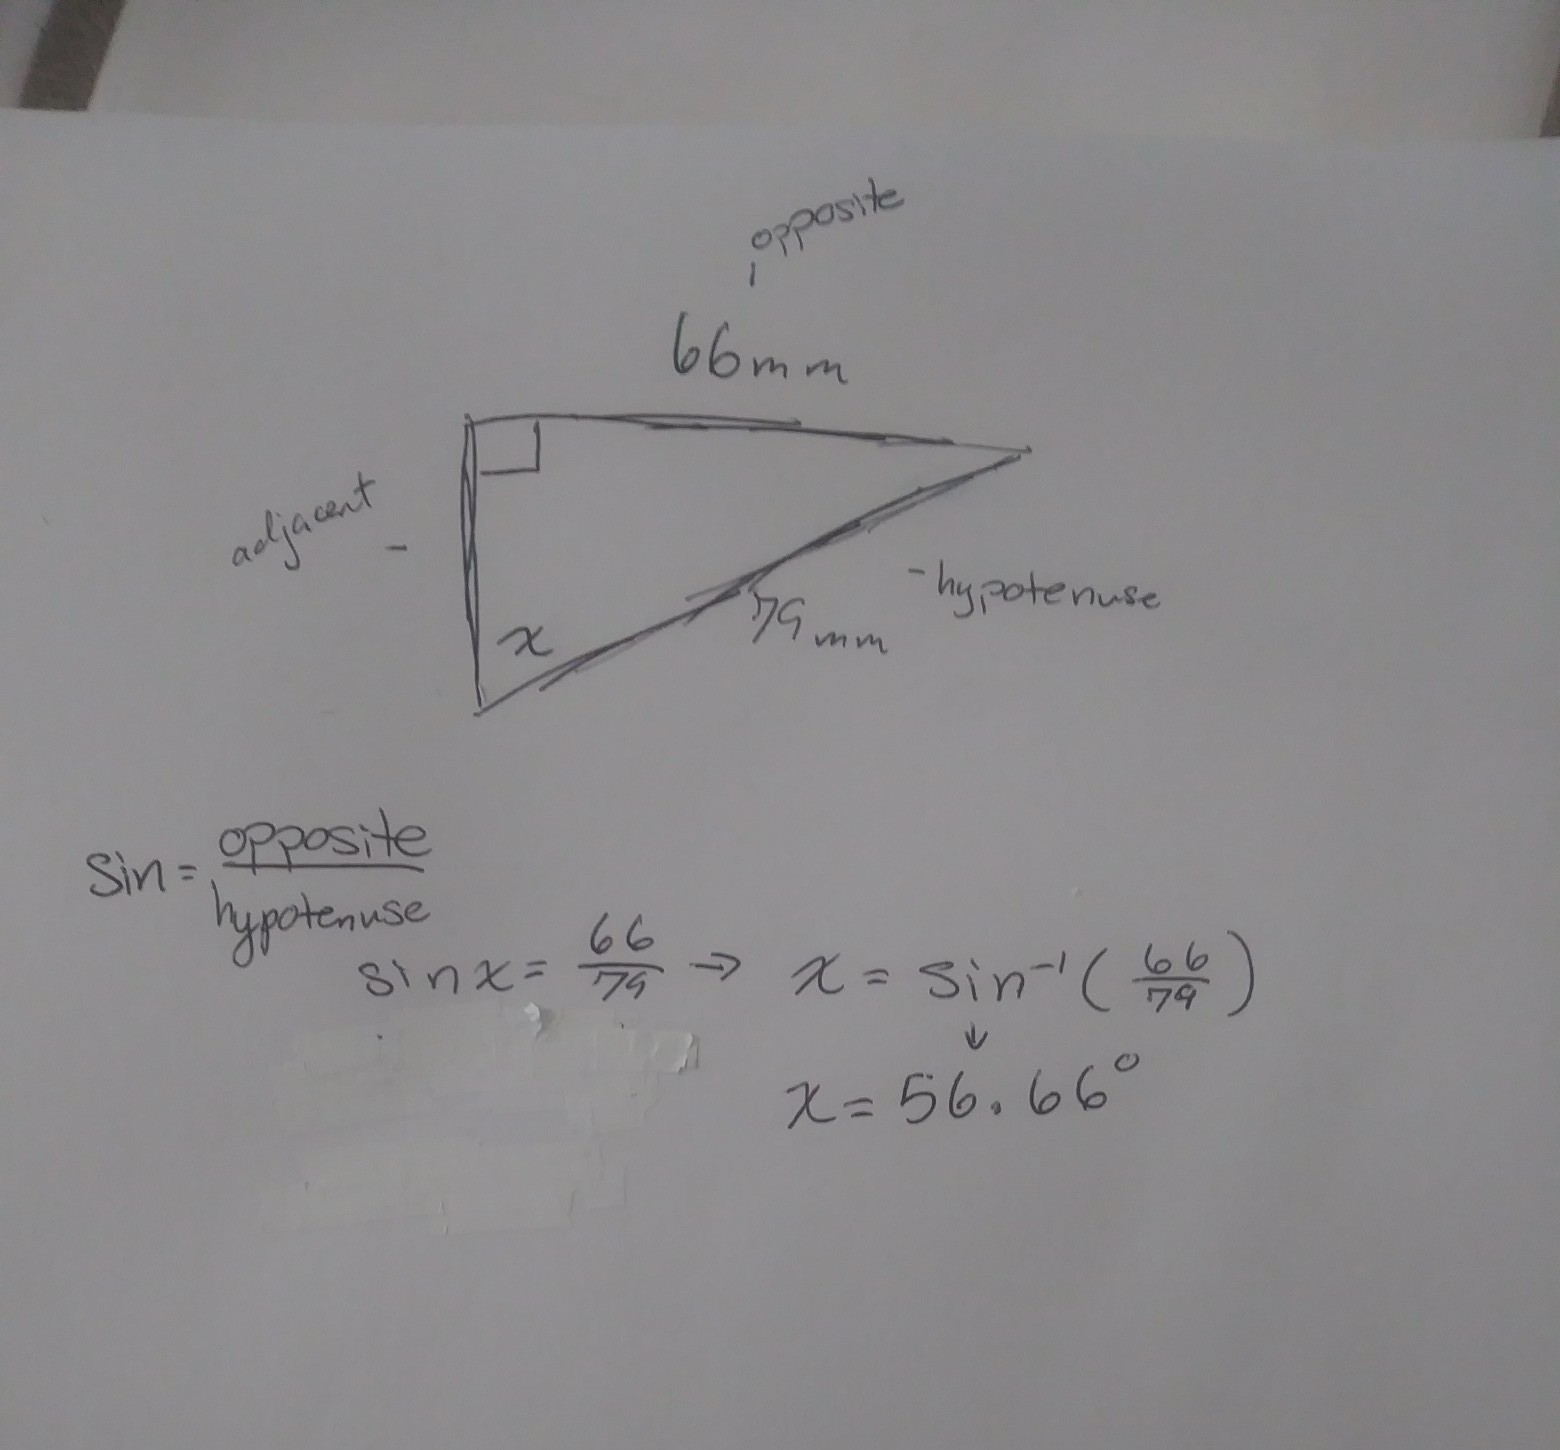 opposite
66mm
adjacent -
- hypotenuse
79mm
x
Sin = opposite / hypotenuse
sin x = 66/79 → x = sin⁻¹ (66/79)
↓
x = 56.66°